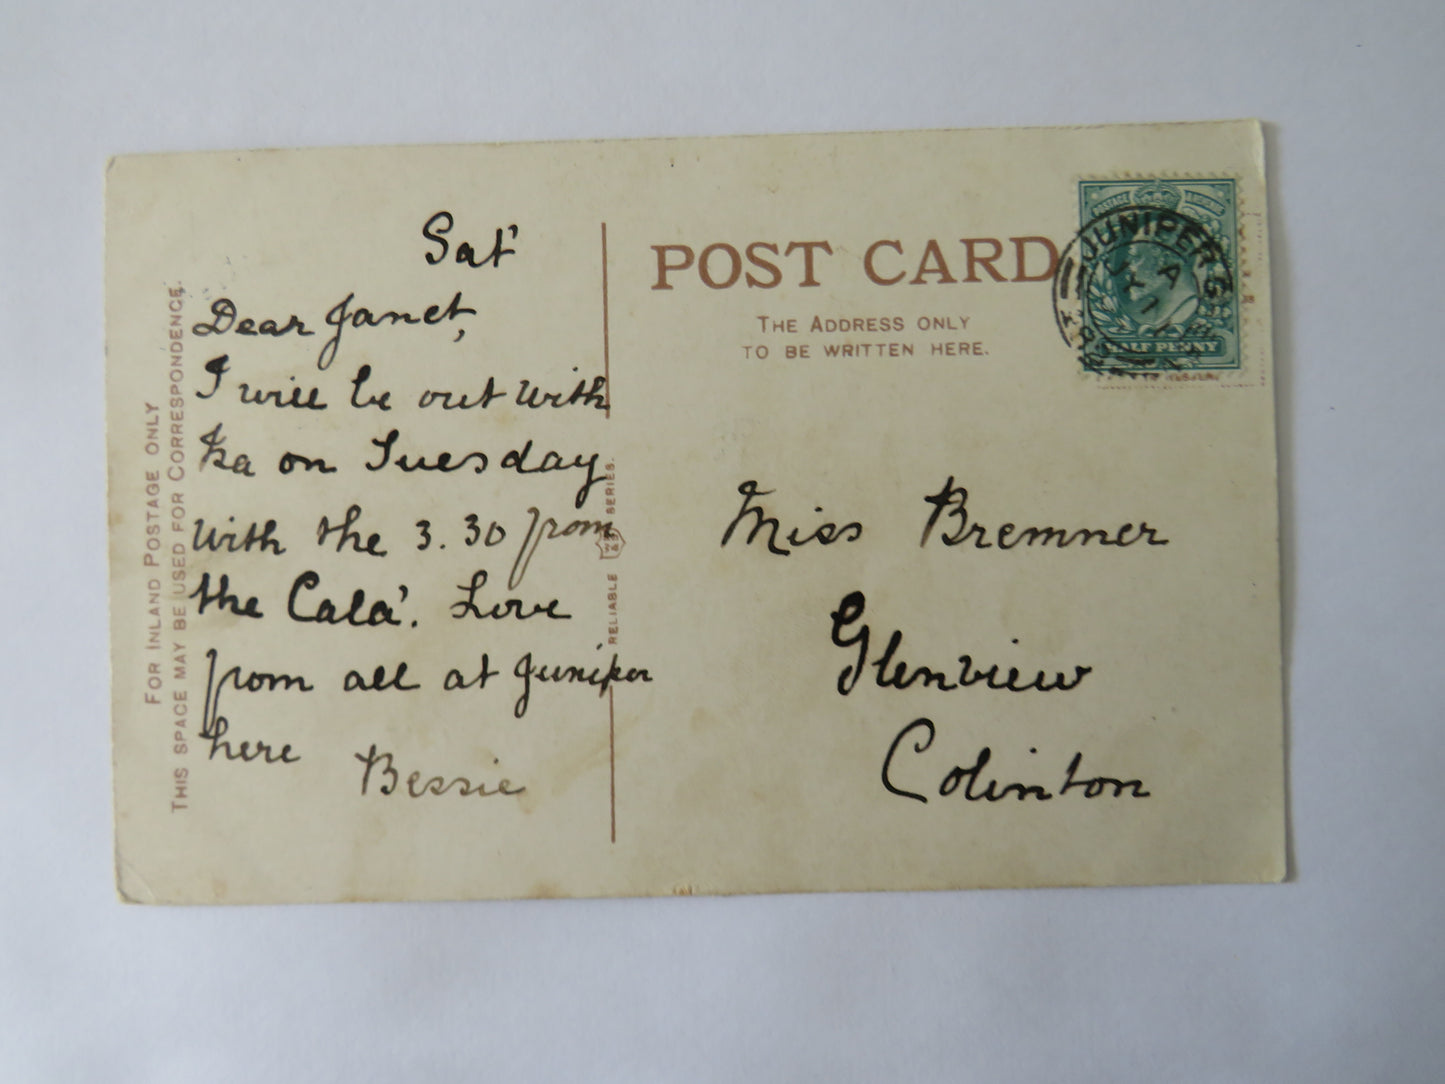 FOR INLAND POSTAGE ONLY
THIS SPACE MAY BE USED FOR CORRESPONDENCE.
Sat'
Dear Janet,
I will be out with
Isa on Tuesday
with the 3.30 from
the Cala'. Love
from all at Juniper
here
Bessie
RELIABLE
SERIES.
POST CARD
THE ADDRESS ONLY
TO BE WRITTEN HERE.
POSTAGE
JUNIPER G
A
HALF PENNY
Miss Bremner
Glenview
Colinton